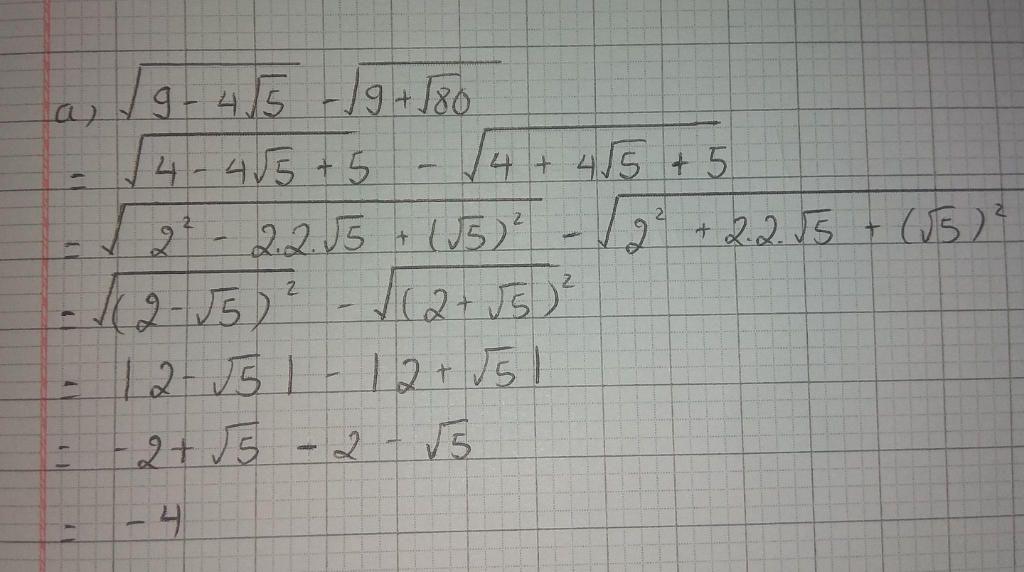 a) √(9 - 4√5) - √(9 + √80)
= √(4 - 4√5 + 5) - √(4 + 4√5 + 5)
= √(2² - 2.2.√5 + (√5)²) - √(2² + 2.2.√5 + (√5)²)
= √((2 - √5)²) - √((2 + √5)²)
= |2 - √5| - |2 + √5|
= -2 + √5 - 2 - √5
= -4